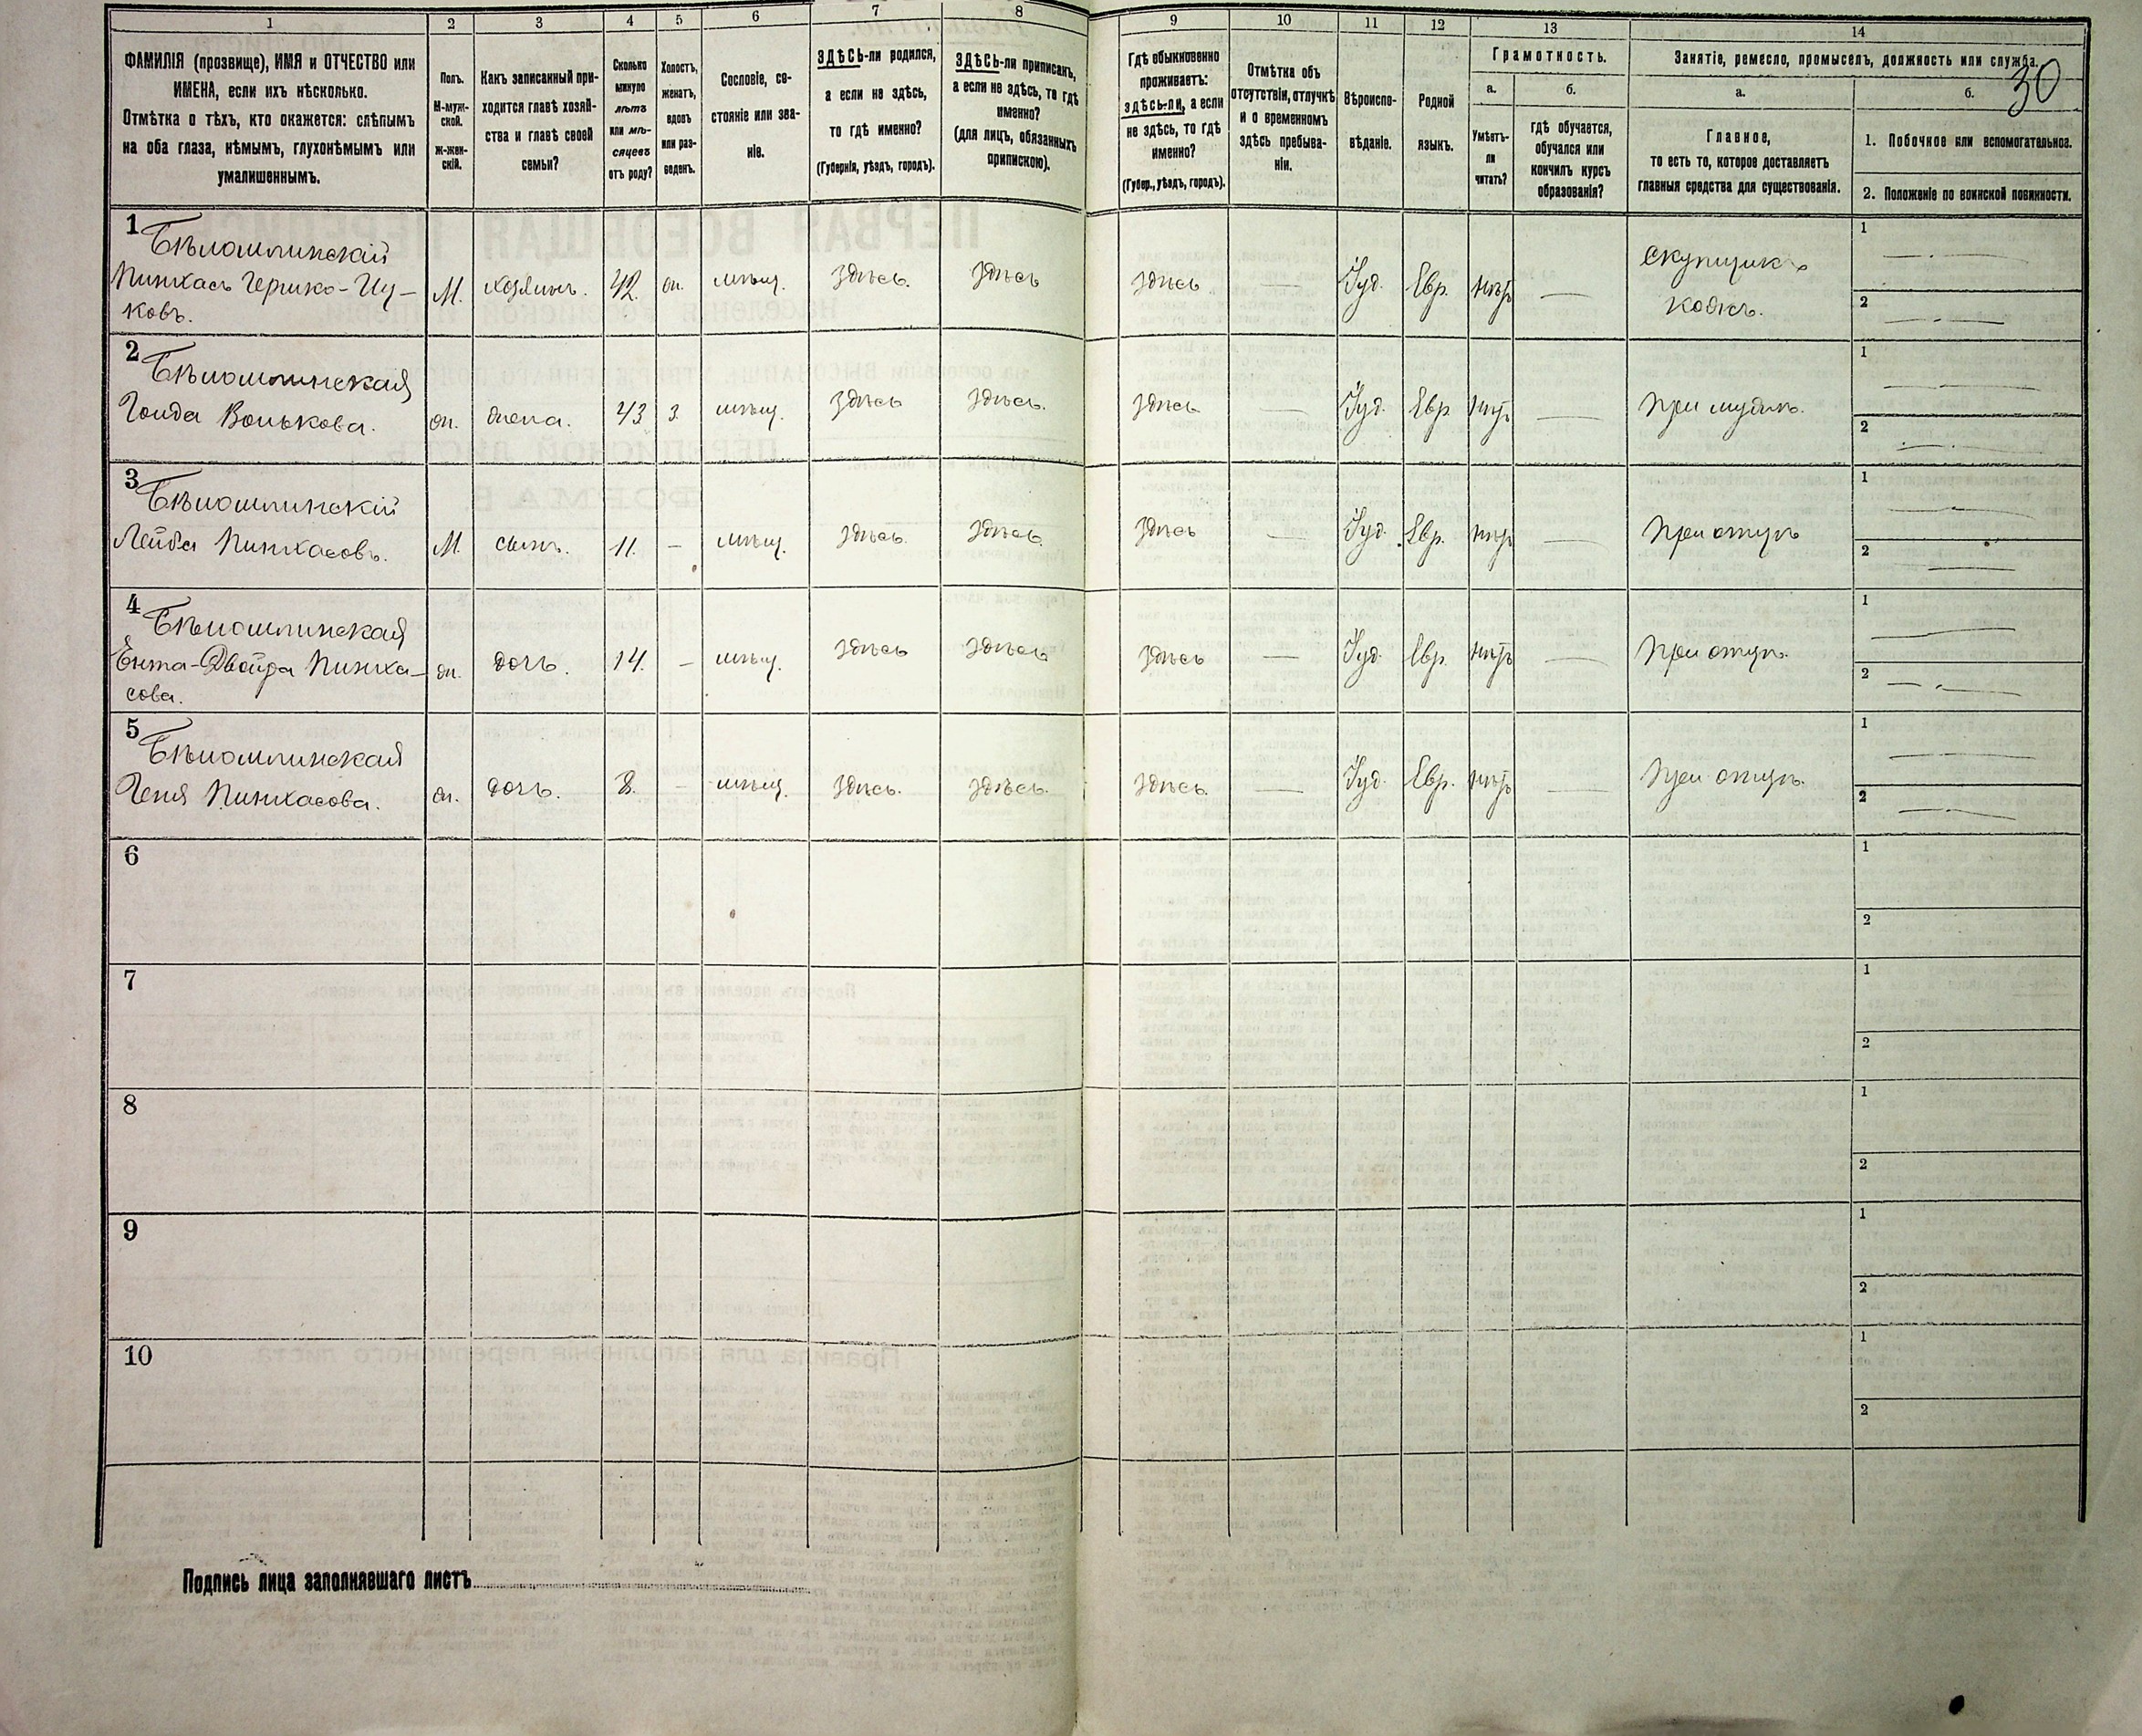 1 2 3 4 5 6 7 8 9 10 11 12 13 14
30
ФАМИЛІЯ (прозвище), ИМЯ и ОТЧЕСТВО или
ИМЕНА, если ихъ нѣсколько.
Отмѣтка о тѣхъ, кто окажется: слѣпымъ
на оба глаза, нѣмымъ, глухонѣмымъ или
умалишеннымъ.
Полъ.
М-муж-
ской.
ж-жен-
скій.
Какъ записанный при-
ходится главѣ хозяй-
ства и главѣ своей
семьи?
Сколько
минуло
лѣтъ
или мѣ-
сяцевъ
отъ роду?
Холостъ,
женатъ,
вдовъ
или раз-
веденъ.
Сословіе, со-
стояніе или зва-
ніе.
ЗДѢСЬ-ли родился,
а если не здѣсь,
то гдѣ именно?
(Губернія, уѣздъ, городъ).
ЗДѢСЬ-ли приписанъ,
а если не здѣсь, то гдѣ
именно?
(для лицъ, обязанныхъ
припискою).
Гдѣ обыкновенно
проживаетъ:
здѣсь-ли, а если
не здѣсь, то гдѣ
именно?
(Губер., уѣздъ, городъ).
Отмѣтка объ
отсутствіи, отлучкѣ
и о временномъ
здѣсь пребыва-
ніи.
Вѣроиспо-
вѣданіе.
Родной
языкъ.
Грамотность.
а.
Умѣетъ-
ли
читать?
б.
гдѣ обучается,
обучался или
кончилъ курсъ
образованія?
Занятіе, ремесло, промыселъ, должность или служба.
а.
Главное,
то есть то, которое доставляетъ
главныя средства для существованія.
б.
1. Побочное или вспомогательное.
2. Положеніе по воинской повинности.
1
Бѣлошлинскій
Пинхасъ Гершко-Иц-
ковъ.
М. хозяинъ. 42. жн. мѣщ. здѣсь. здѣсь здѣсь — Іуд. Евр. нѣтъ — скупщикъ
кожъ.
1 —
2 —
2
Бѣлошлинская
Голда Волькова.
жн. жена. 43 з. мѣщ. здѣсь здѣсь. здѣсь — Іуд. Евр нѣтъ — при мужѣ.
1 —
2 —
3
Бѣлошлинскій
Лейба Пинхасовъ.
М. сынъ. 11. — мѣщ. здѣсь. здѣсь. здѣсь — Іуд. Евр. нѣтъ — при отцѣ
1 —
2 —
4
Бѣлошлинская
Ента-Двойра Пинха-
сова.
жн. дочь. 14. — мѣщ. здѣсь здѣсь здѣсь — Іуд. Евр. нѣтъ — при отцѣ.
1 —
2 —
5
Бѣлошлинская
Геня Пинхасова.
жн. дочь. 8. — мѣщ. здѣсь. здѣсь. здѣсь. — Іуд. Евр. нѣтъ — при отцѣ.
1 —
2 —
6
1
2
7
1
2
8
1
2
9
1
2
10
1
2
Подпись лица заполнявшаго листъ